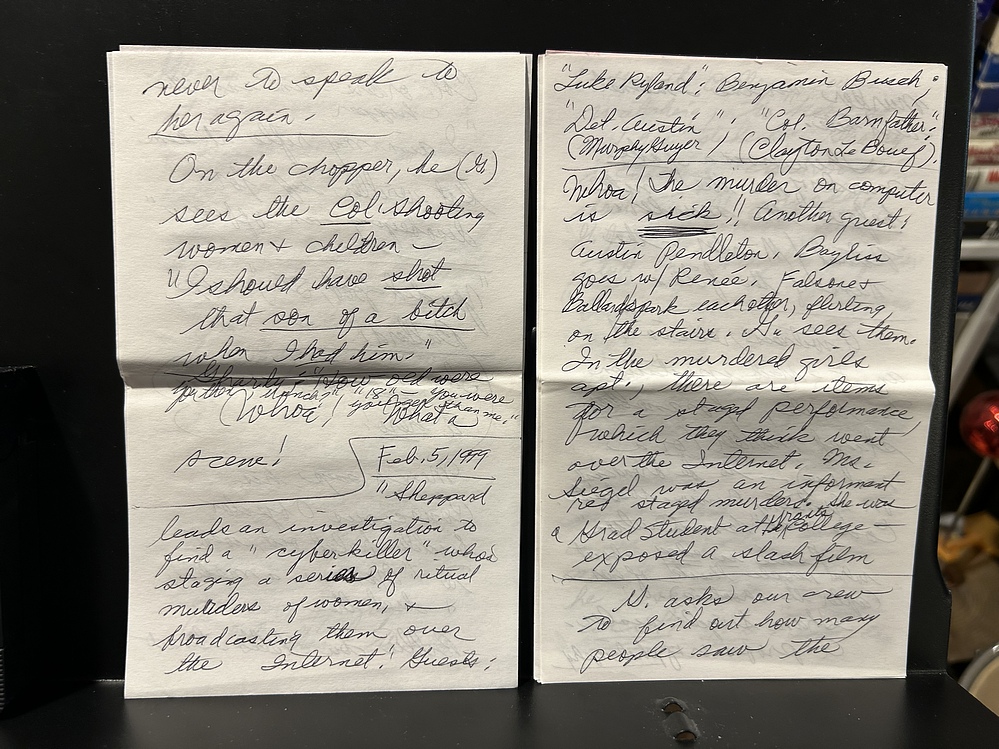 never to speak to
her again.
On the chopper, he (G)
sees the Col. shooting
women & children —
"I should have shot
that son of a bitch
when I had him."
"How old were
"18" you were
younger than me."
(Whoa! What a
scene!
Feb. 5, 1999
"Sheppard
leads an investigation to
find a "cyber-killer" who's
staging a series of ritual
murders of women, &
broadcasting them over
the Internet." Guests:
"Luke Ryland": Benjamin Busch;
"Det. Austin"; "Col. Barnfather."
(Murphy Guyer); (Clayton LeBouef).
Whoa! The murder on computer
is sick!! Another guest:
Austin Pendleton. Bayliss
goes w/ Renée. Falsone &
Ballard spark each other, flirting,
on the stairs. G. sees them.
In the murdered girls
apt., there are items
for a staged performance,
which they think went
over the Internet. Ms.
Siegel was an informant
re staged murders. She was
a Grad Student at College —
exposed a slash film
G. asks our crew
to find out how many
people saw the